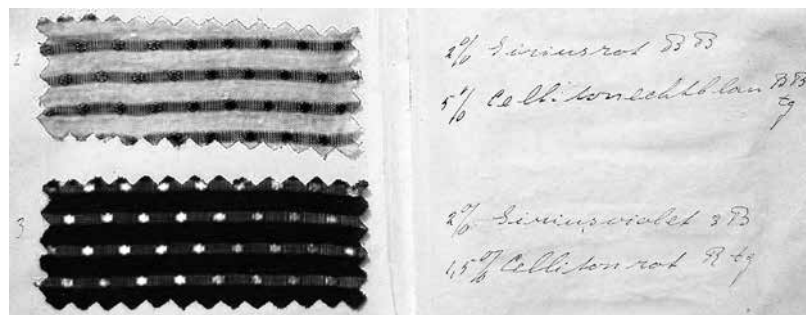 2
2% Siriusrot BB
5% Cellitonechtblau BB
tg
3
2% Siriusviolet 3B
1,5% Cellitonrot R tg